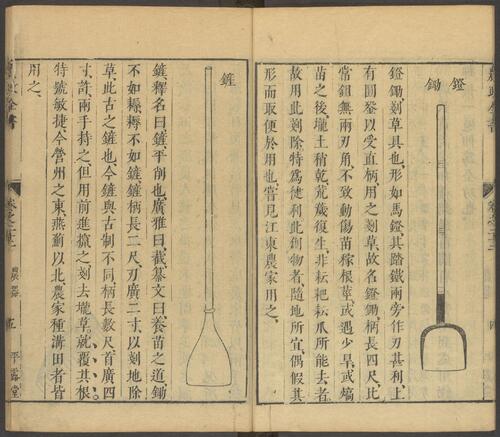 鐙鋤
鐙鋤剗草具也形如馬鐙其踏鐵兩旁作刃甚利上
有圓銎以受直柄用之剗草故名鐙鋤柄長四尺比
常鉏無兩刃角不致動傷苗稼根莖或遇少旱或熇
苗之後壠土稍乾荒薉復生非耘耙耘爪所能去者
故用此剗除特爲徤利此創物者隨地所宜偶假其
形而取便於用也嘗見江東農家用之
鏟
鏟釋名曰鏟平削也廣雅曰截纂文曰養苗之道鋤
不如耨耨不如鏟鏟柄長二尺刃廣二寸以剗地除
草此古之鏟也今鏟與古制不同柄長數尺首廣四
寸許兩手持之但用前進攛之剗去壠草就覆其根
特號敏捷今營州之東燕薊以北農家種溝田者皆
用之
全書
農器
五
平露堂